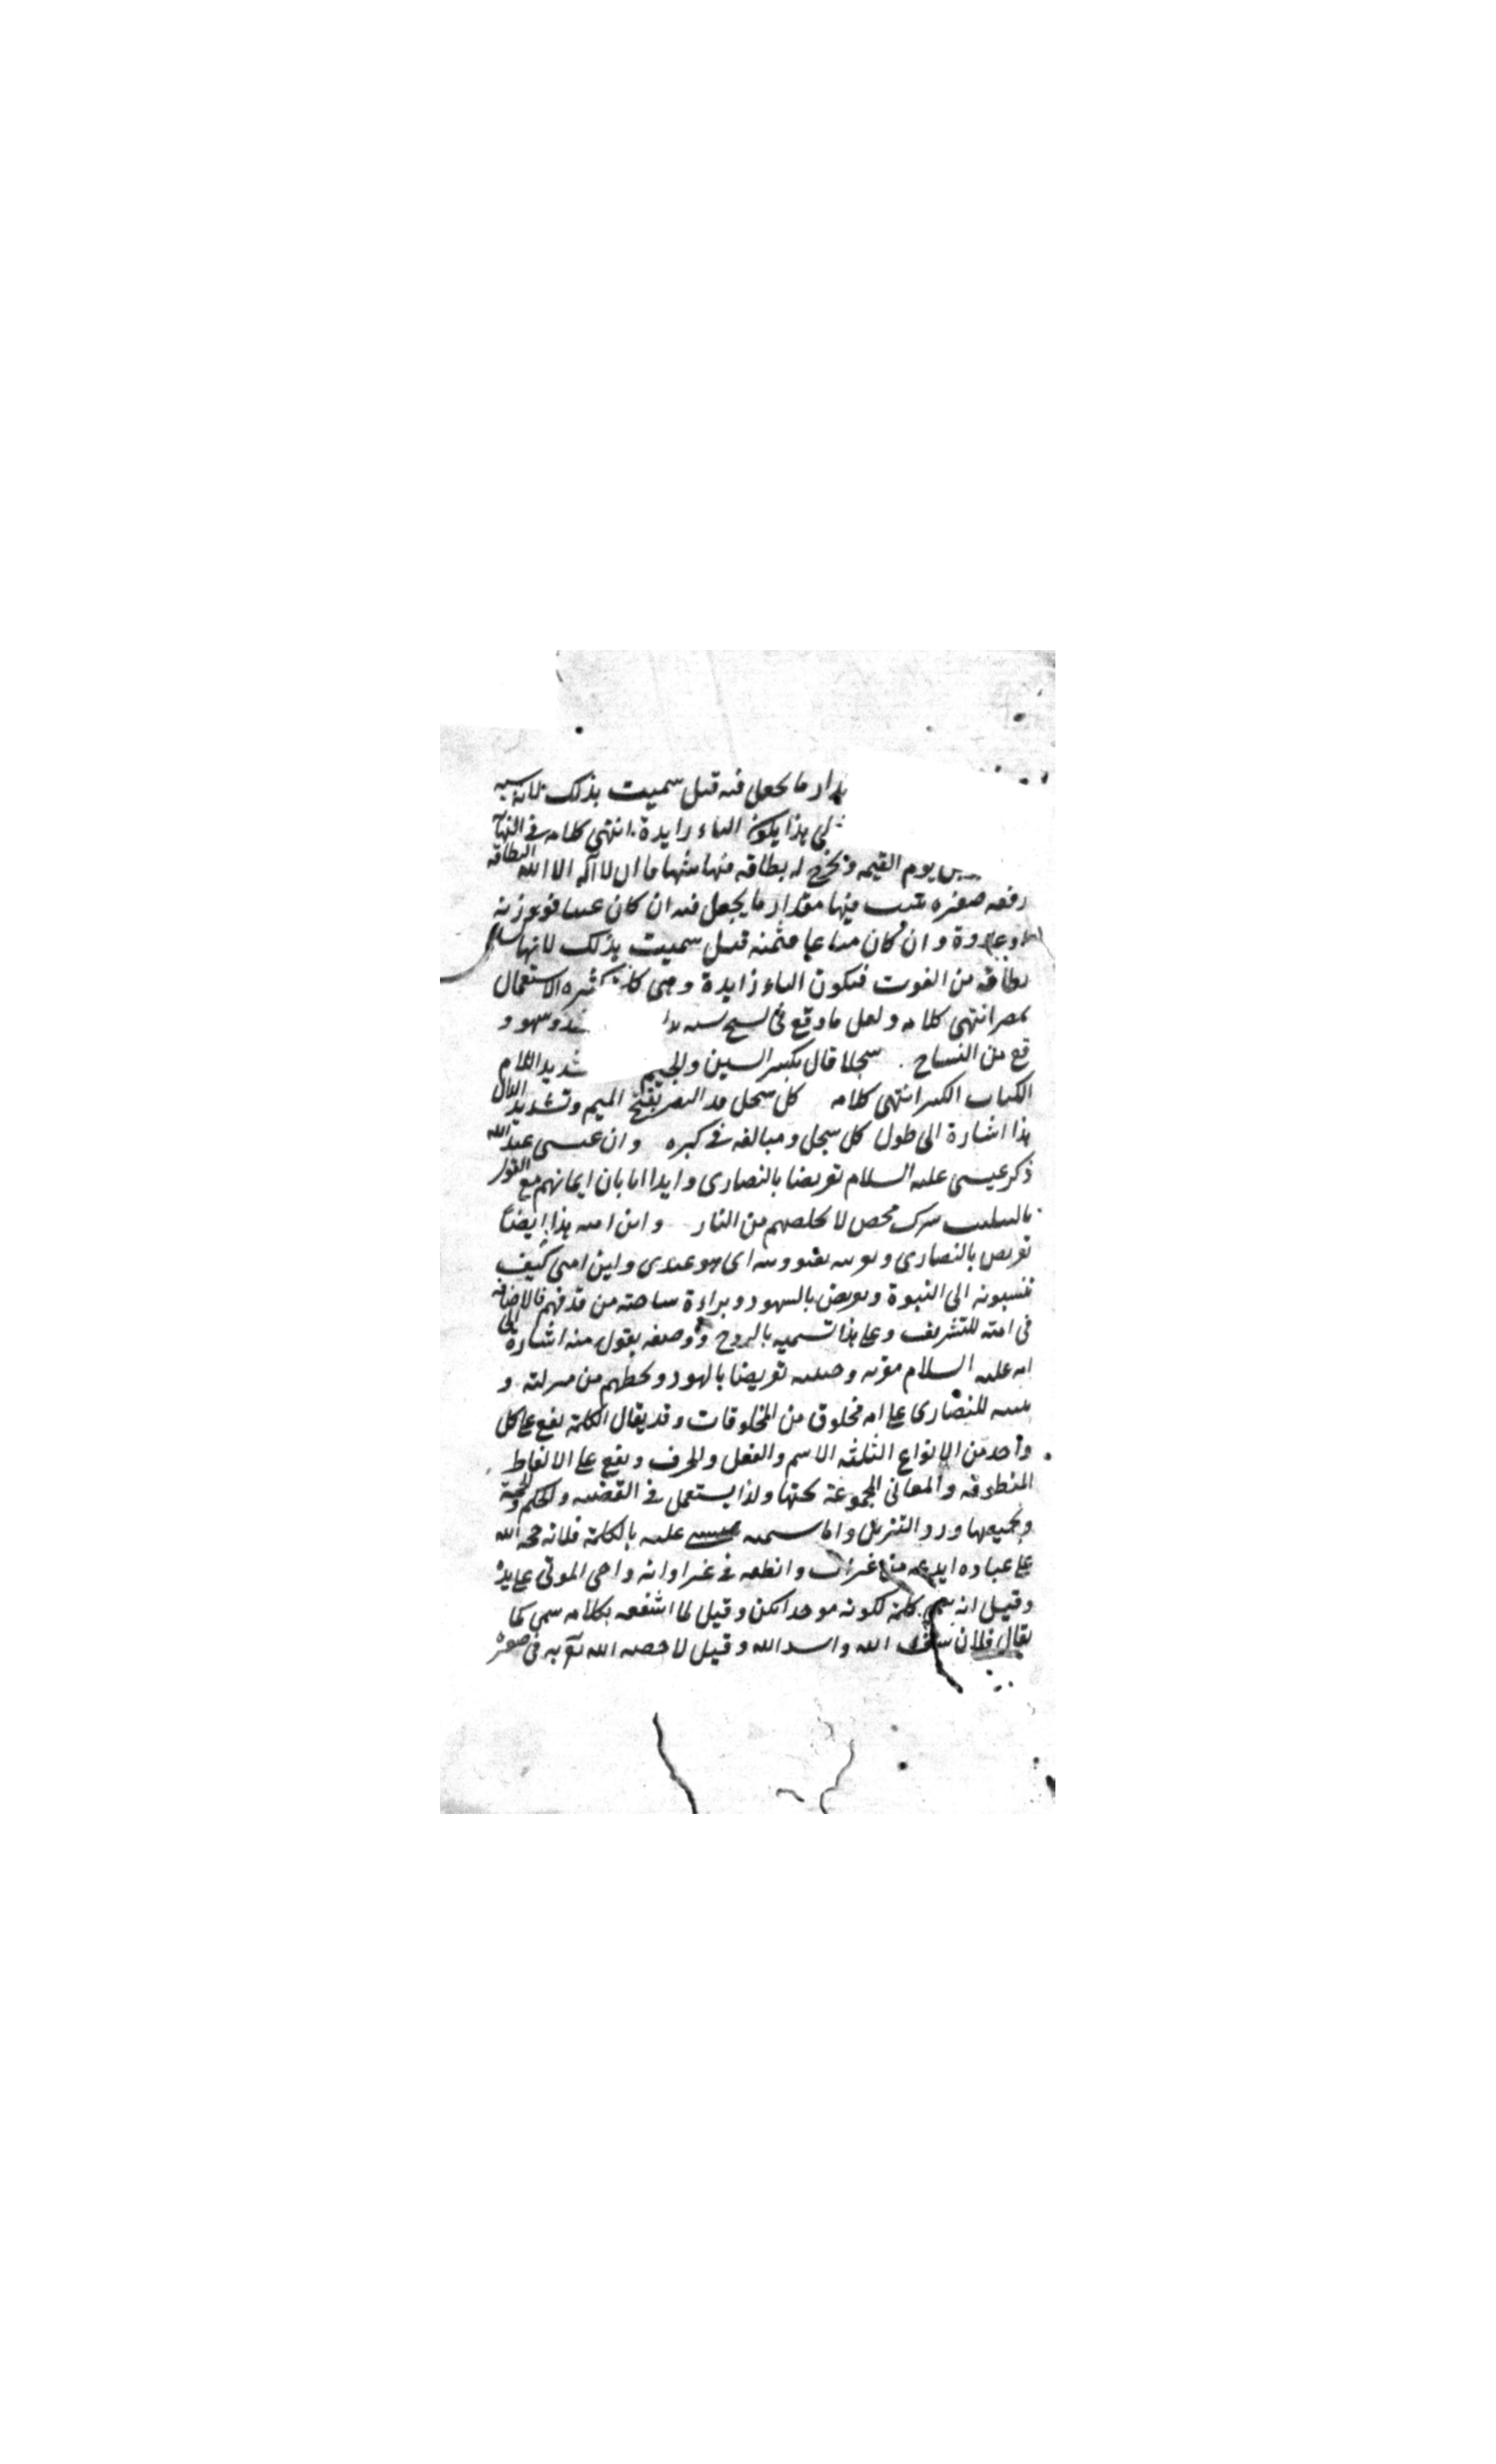 مقدار ما يجعل فيه قيل سميت بذلك لانه
هذا يكون الباء زايدة انتهى كلامه في النهاية
يوم القيمة وتخرج له بطاقة فيها شهادة ان لا اله الا الله البطاقة
رقعة صغيرة يثبت فيها مقدار ما يجعل فيه ان كان عينا فوزنه
او عدده وان كان متاعا فثمنه قيل سميت بذلك لانها
بطاقة من الثوب فتكون الباء زايدة وهي كثيرة الاستعمال
بمصر انتهى كلامه ولعل ما وقع في نسخ وسهو و
قع من النساخ سجلا قال بكسر السين والجيم وتشديد اللام
الكتاب الكبير انتهى كلامه كل سجل مد البصر بفتح الميم وتشديد الدال
هذا اشارة الى طول كل سجل ومبالغة في كبره وان عيسى عبد الله
ذكر عيسى عليه السلام تعريضا بالنصارى وايذانا بان ايمانهم مع القول
بالتثليث شرك محض لا يخلصهم من النار وابن امته هذا ايضا
تعريض بالنصارى وتقرير اى هو عبدى وابن امتى كيف
تنسبونه الى النبوة وتعريض باليهود وبراءة ساحته من قذفهم فالاضافة
في امته للتشريف وعلى هذا تسميه بالروح ووصفه بقوله منه اشارة الى
انه عليه السلام تعريضا باليهود وبحطهم من منزلته و
للنصارى على انه مخلوق من المخلوقات وقد يقال الكلمة يقع على كل
واحد من الانواع الثلثة الاسم والفعل والحرف ويقع على الالفاظ
المنطوقة والمعانى المجموعة تحتها ولذا يستعمل في القضية والحكم والحجة
وبجميعها ورد التنزيل واما تسميه عيسى عليه بالكلمة فلانه حجة الله
على عباده ابدعه من غير اب وانطقه في غير اوانه واحى الموتى على يده
وقيل انه سمى كلمة لكونه موجدا بكن وقيل لما انتفع بكلامه سمى كما
يقال فلان سيف الله واسد الله وقيل لما خصه الله تع به في صغره